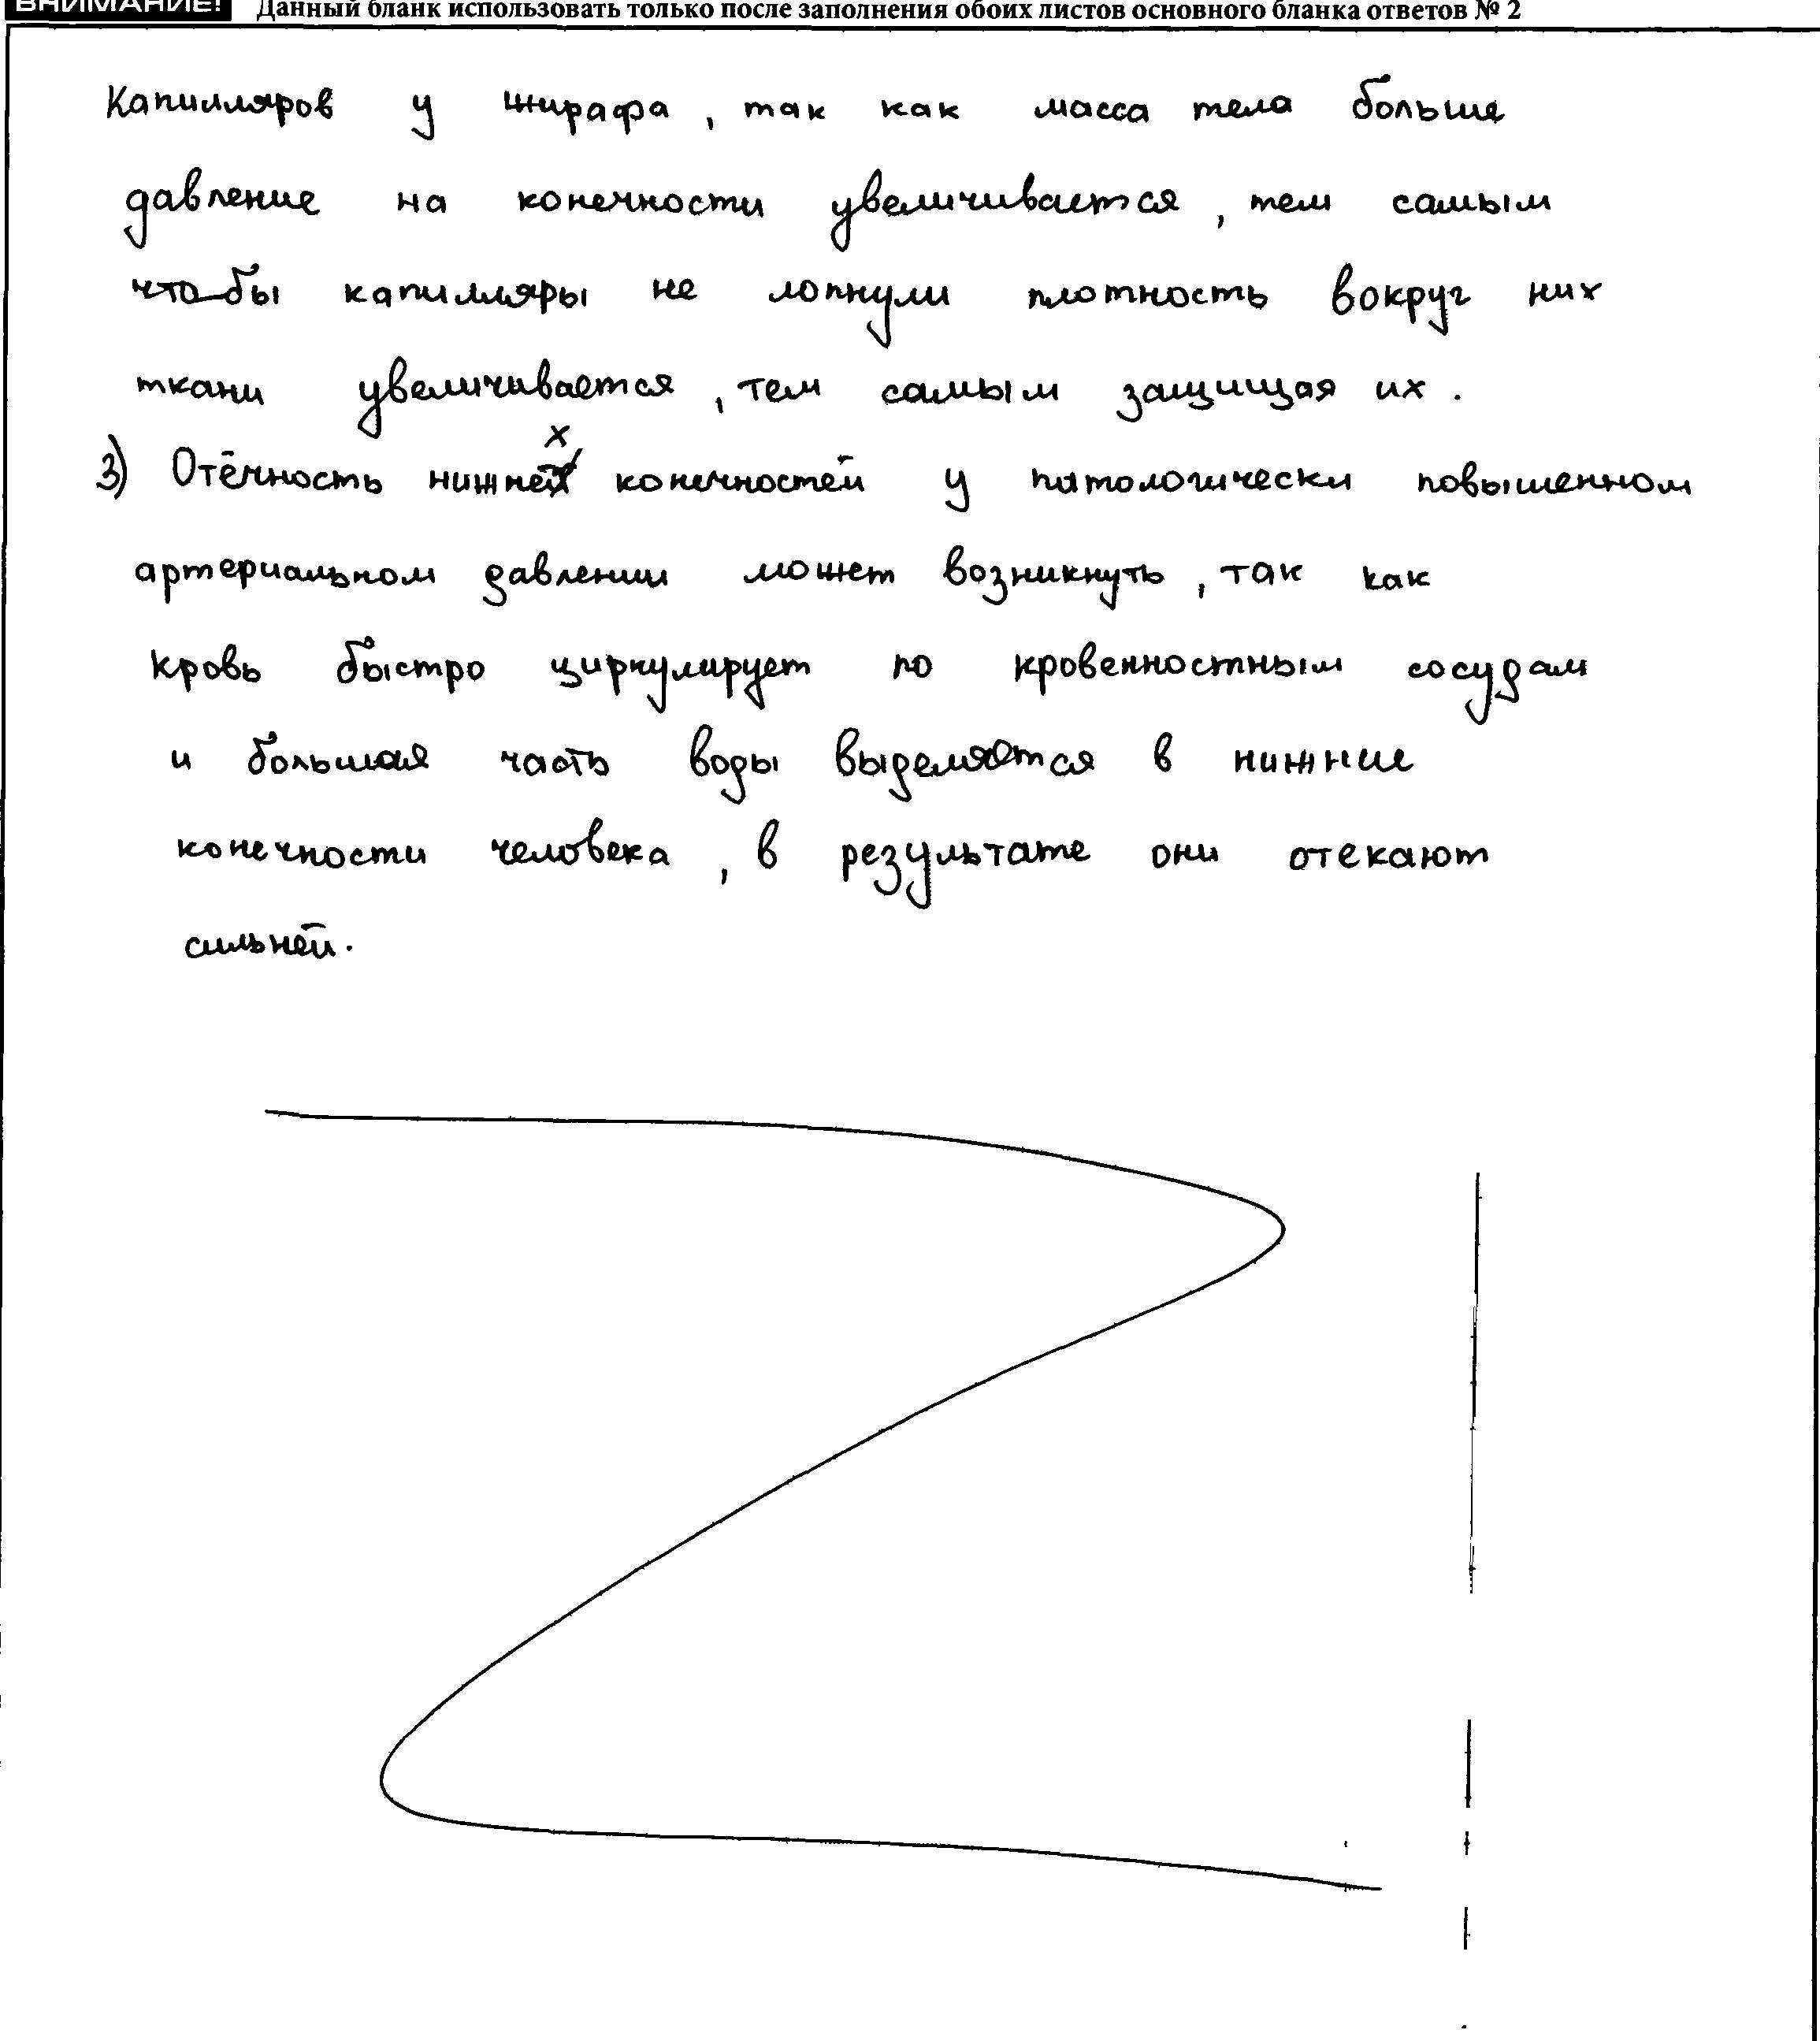 ВНИМАНИЕ! Данный бланк использовать только после заполнения обоих листов основного бланка ответов № 2
Капилляров у жирафа, так как масса тела больше
давление на конечности увеличивается, тем самым
что бы капилляры не лопнули плотность вокруг них
ткани увеличивается, тем самым защищая их.
3) Отёчность нижних конечностей у патологически повышенном
артериальном давлении может возникнуть, так как
кровь быстро циркулирует по кровенностным сосудам
и большая часть воды выделяется в нижние
конечности человека, в результате они отекают
сильней.